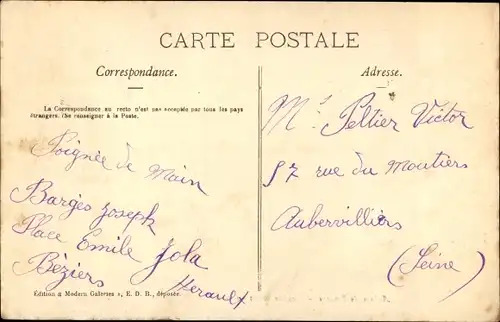 CARTE POSTALE
Correspondance.
La Correspondance au recto n'est pas acceptée par tous les pays
étrangers. (Se renseigner à la Poste.
Poignée de Main
Bargès Joseph
Place Emile Zola
Bèziers
Herault
Edition « Modern Galeries », E. D. B., déposée.
Adresse.
Mr Peltier Victor
57 rue du Moutiers
Aubervilliers
(Seine)